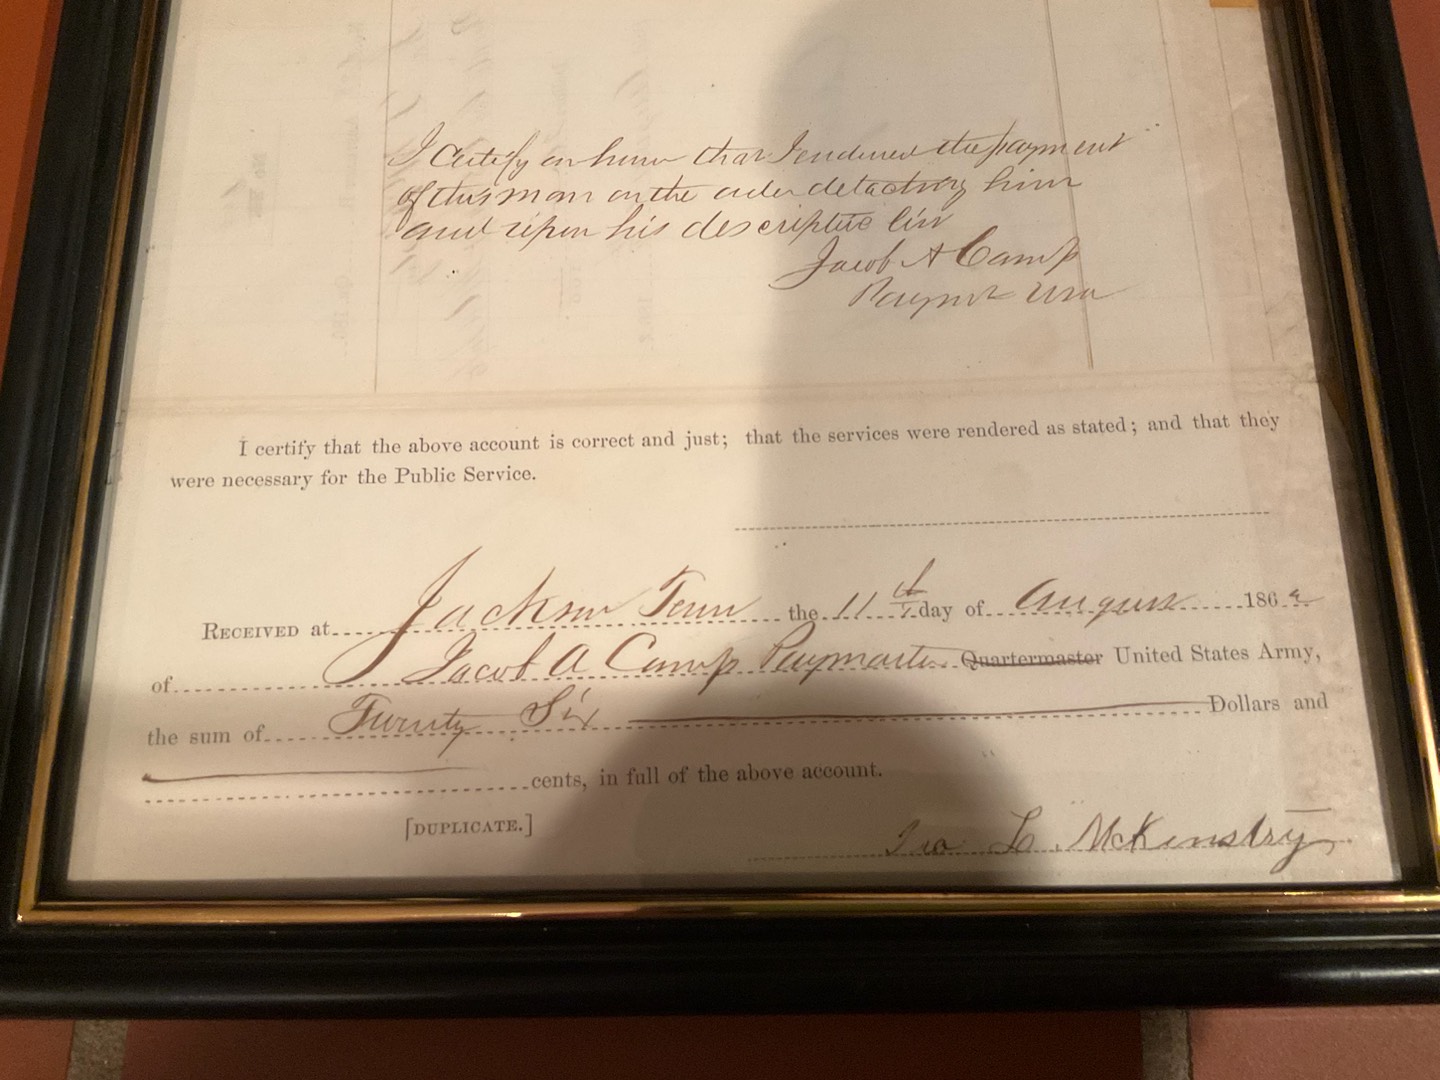 I Certify on honor that I endorsed the payment
of this man on the order detaching him
and upon his descriptive list
Jacob A Camp
Paymr USA
I certify that the above account is correct and just; that the services were rendered as stated; and that they
were necessary for the Public Service.
RECEIVED at Jackson Tenn the 11th day of August 1862
of Jacob A Camp Paymaster Quartermaster United States Army,
the sum of Twenty Six Dollars and
cents, in full of the above account.
[DUPLICATE.]
L. McKinstry